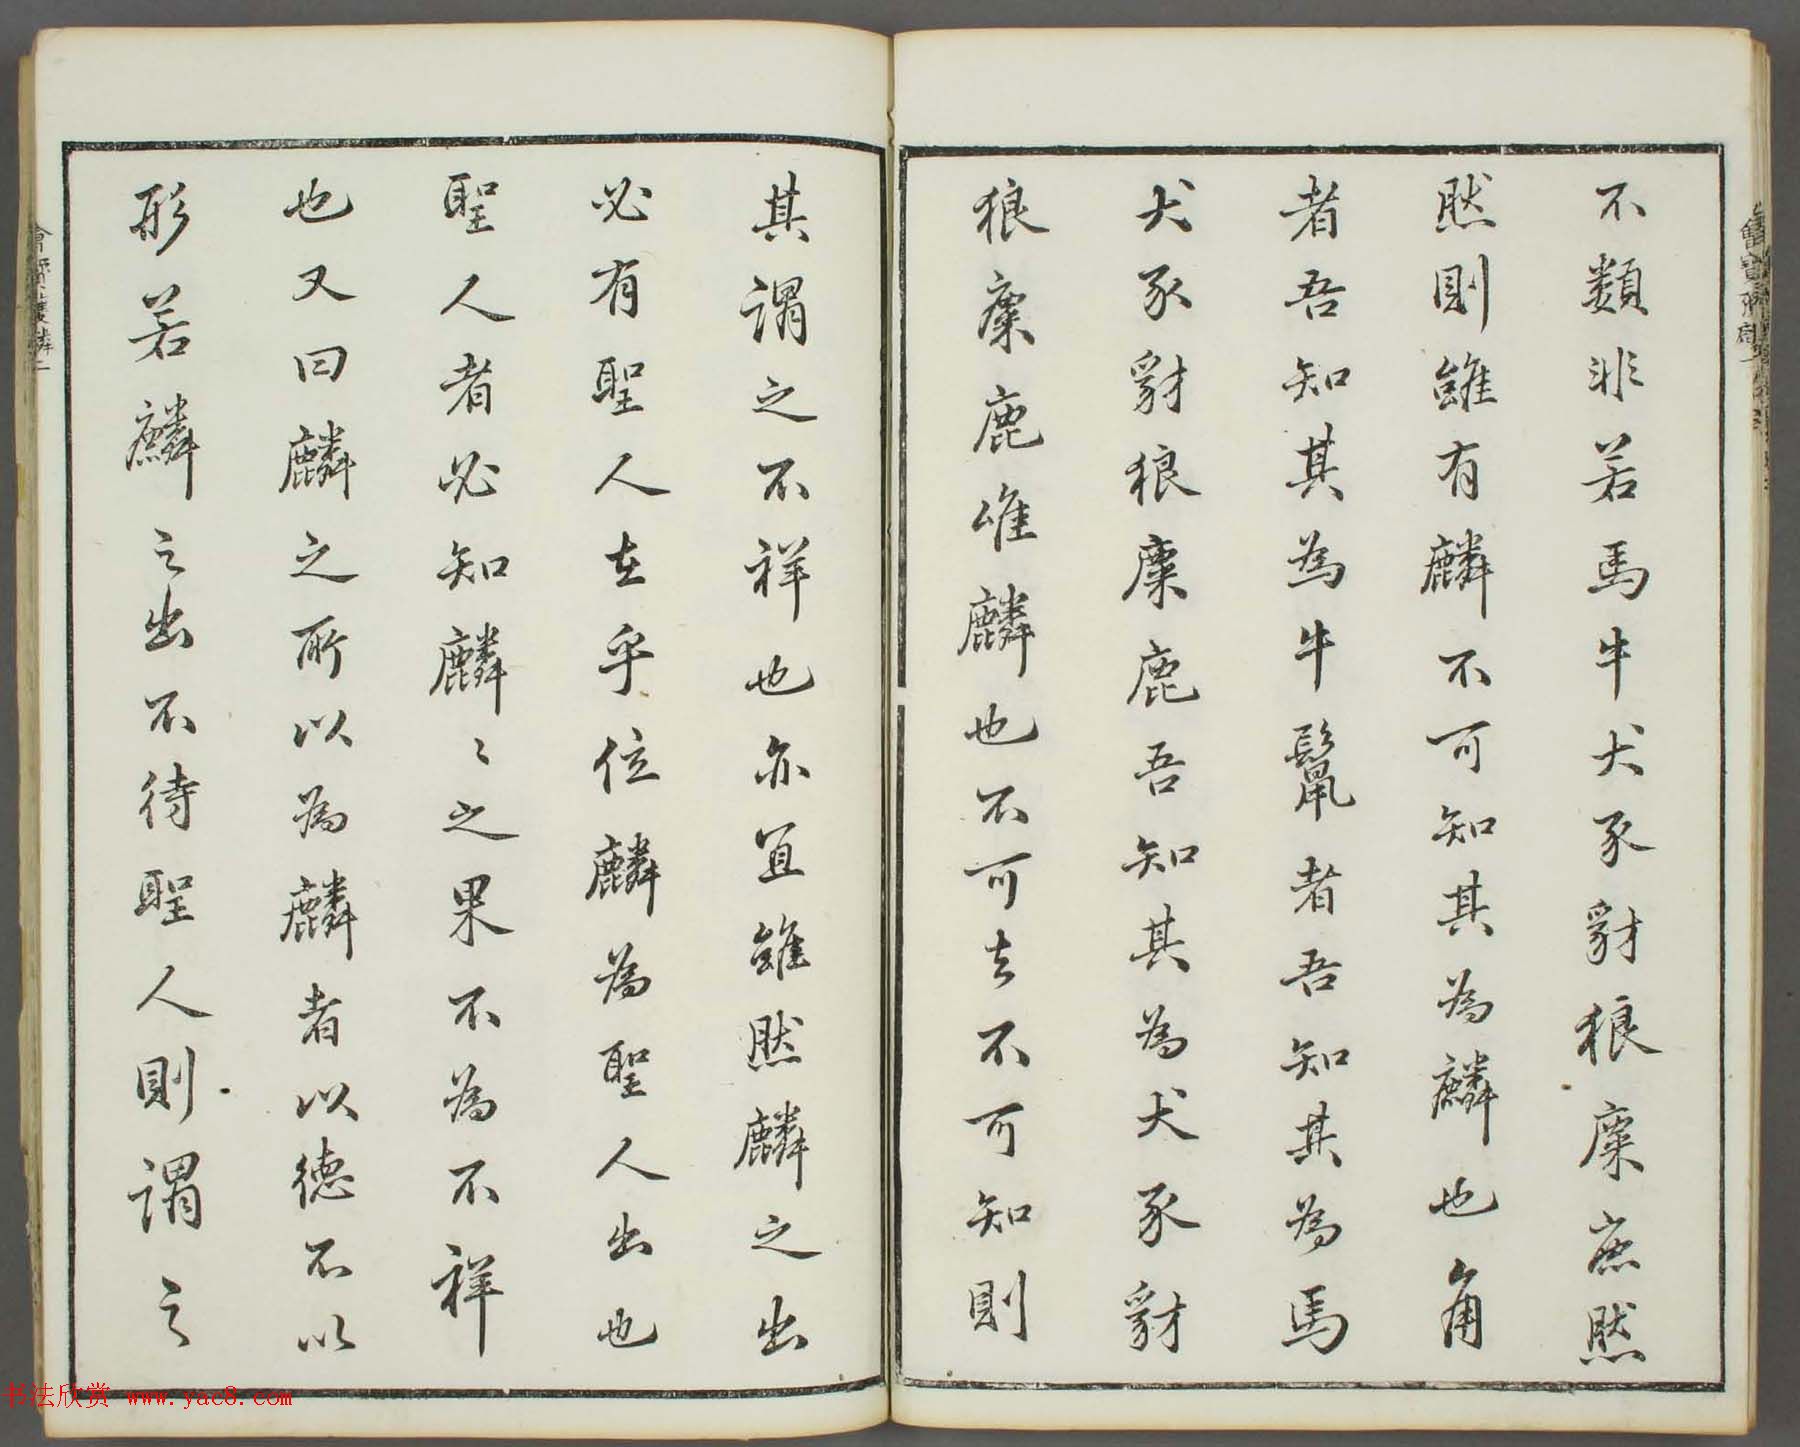 不類非若馬牛犬豕豺狼麋鹿然
然則雖有麟不可知其為麟也角
者吾知其為牛鬣者吾知其為馬
犬豕豺狼麋鹿吾知其為犬豕豺
狼麋鹿唯麟也不可知不可知則
其謂之不祥也亦宜雖然麟之出
必有聖人在乎位麟為聖人出也
聖人者必知麟〻之果不為不祥
也又曰麟之所以為麟者以德不以
形若麟之出不待聖人則謂之
书法欣赏 www.yac8.com